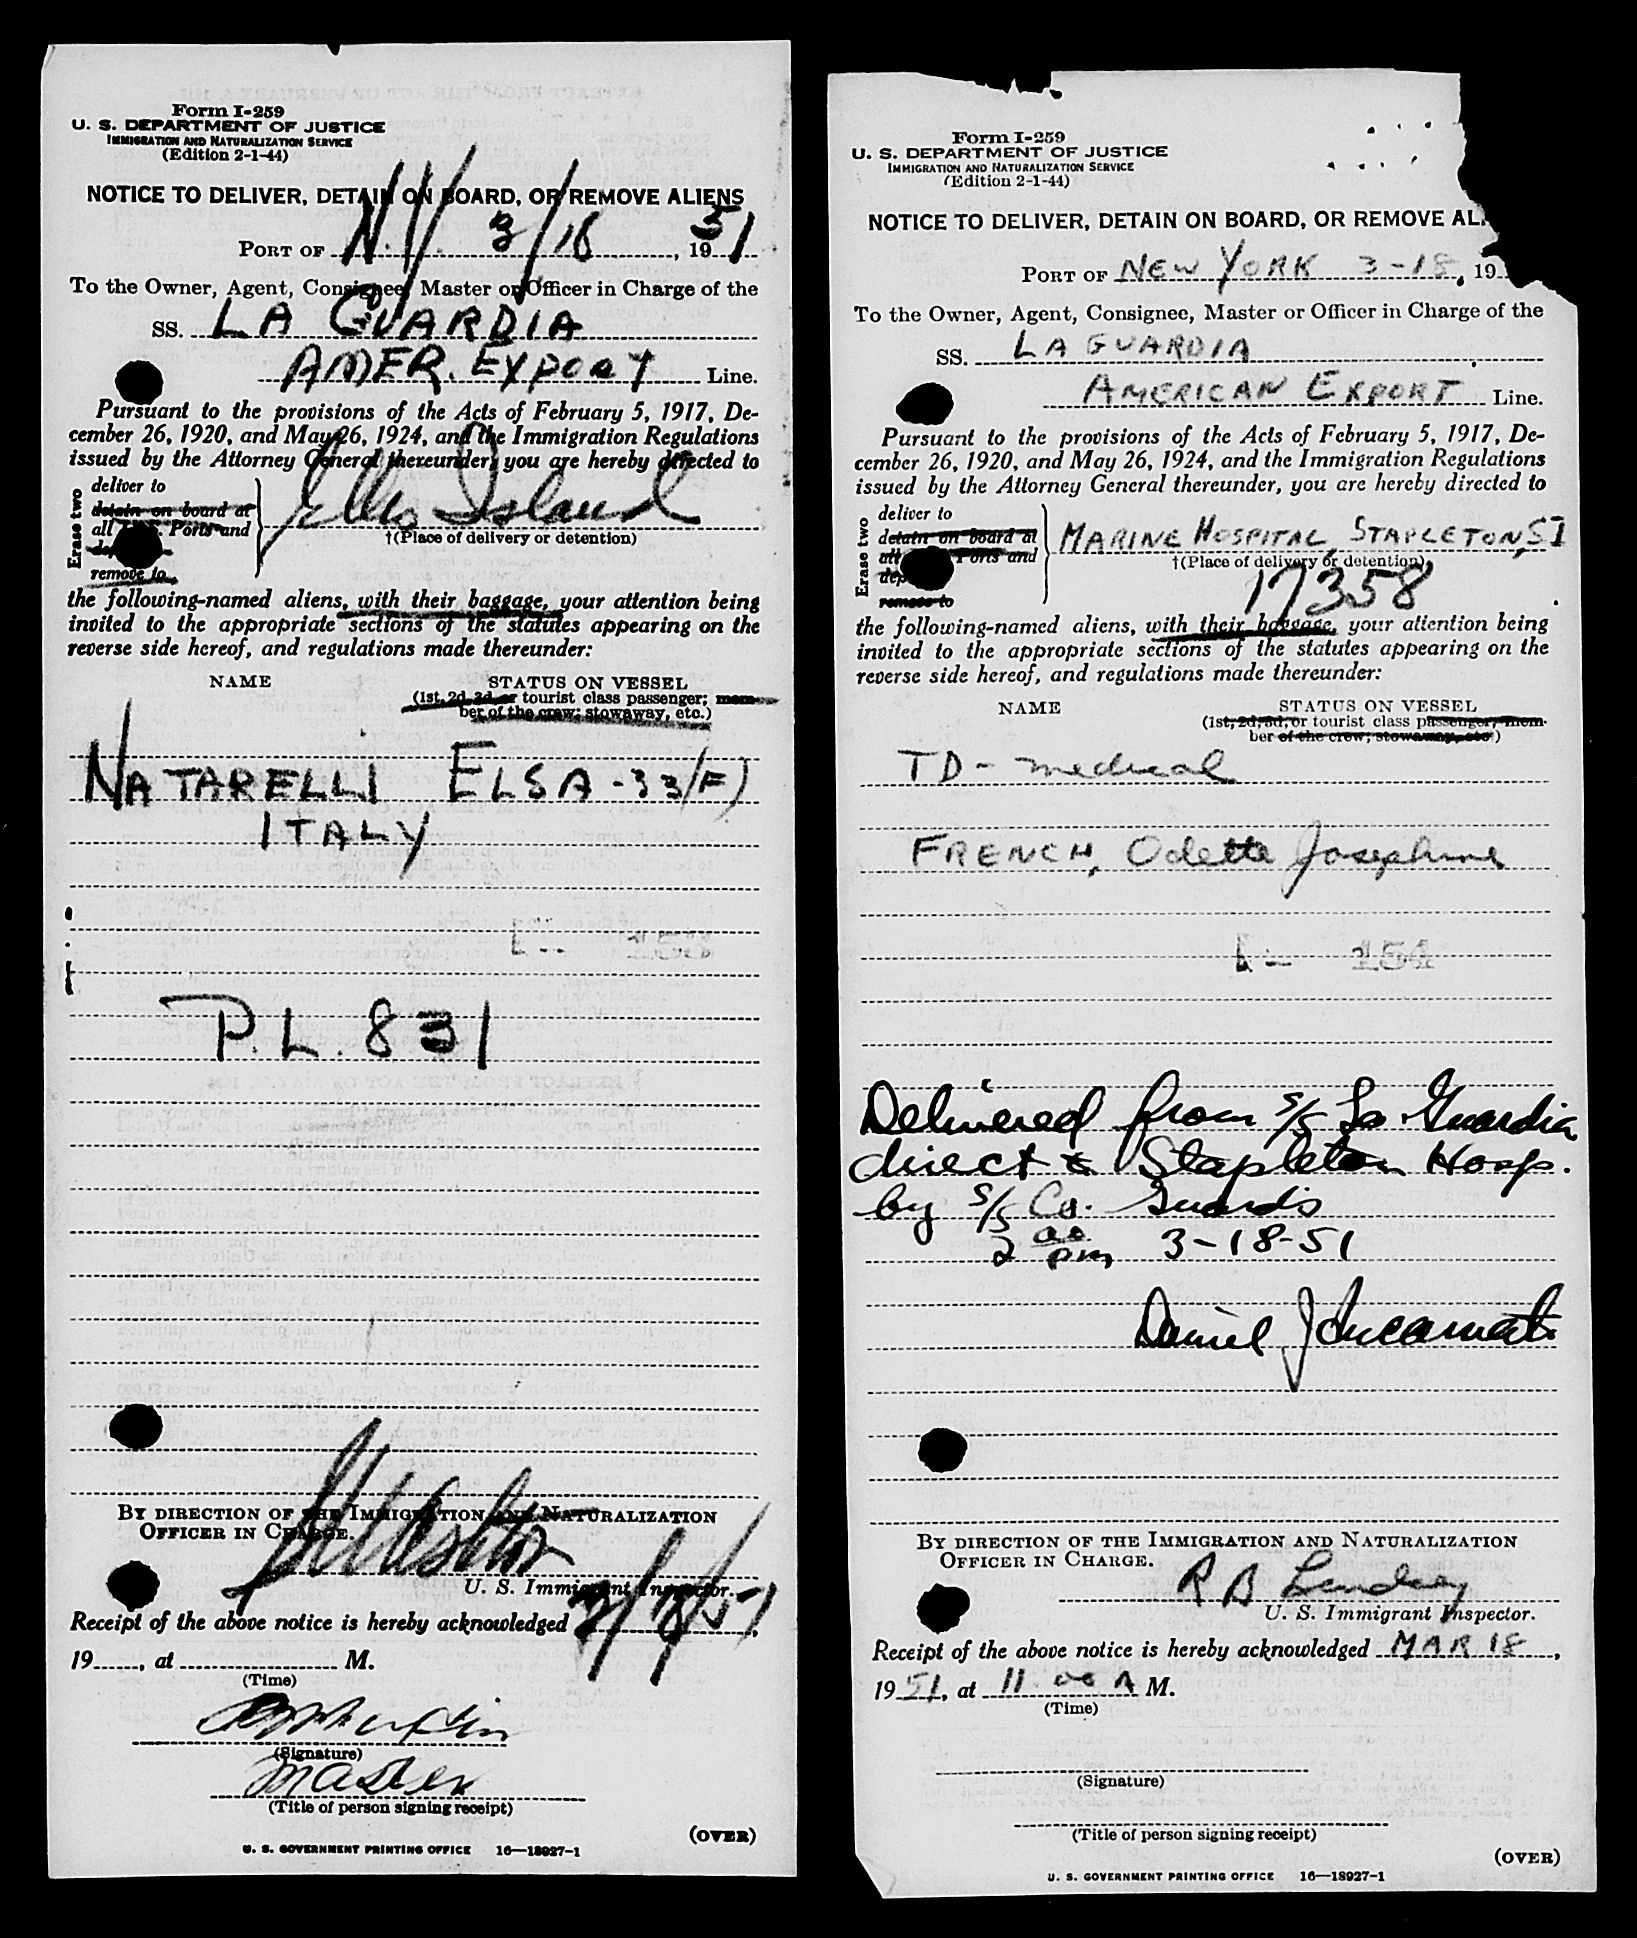 Form I-259
U. S. DEPARTMENT OF JUSTICE
IMMIGRATION AND NATURALIZATION SERVICE
(Edition 2-1-44)
NOTICE TO DELIVER, DETAIN ON BOARD, OR REMOVE ALIENS
PORT OF N.Y. 3/18, 1951
To the Owner, Agent, Consignee, Master or Officer in Charge of the
SS. LA GUARDIA
AMER. EXPORT Line.
Pursuant to the provisions of the Acts of February 5, 1917, De-
cember 26, 1920, and May 26, 1924, and the Immigration Regulations
issued by the Attorney General thereunder, you are hereby directed to
Erase two
deliver to
detain on board at
all U.S. Ports and
remove to
Ellis Island
†(Place of delivery or detention)
the following-named aliens, with their baggage, your attention being
invited to the appropriate sections of the statutes appearing on the
reverse side hereof, and regulations made thereunder:
NAME STATUS ON VESSEL
(1st, 2d, 3d, or tourist class passenger; mem-
ber of the crew; stowaway, etc.)
NATARELLI ELSA - 33(F)
ITALY
P.L. 831
BY DIRECTION OF THE IMMIGRATION AND NATURALIZATION
OFFICER IN CHARGE.
U. S. Immigrant Inspector.
Receipt of the above notice is hereby acknowledged 3/18/51,
19......, at .................. M.
(Time)
(Signature)
Master
(Title of person signing receipt)
(OVER)
U. S. GOVERNMENT PRINTING OFFICE 16—18927-1
Form I-259
U. S. DEPARTMENT OF JUSTICE
IMMIGRATION AND NATURALIZATION SERVICE
(Edition 2-1-44)
NOTICE TO DELIVER, DETAIN ON BOARD, OR REMOVE AL
PORT OF NEW YORK 3-18, 19
To the Owner, Agent, Consignee, Master or Officer in Charge of the
SS. LA GUARDIA
AMERICAN EXPORT Line.
Pursuant to the provisions of the Acts of February 5, 1917, De-
cember 26, 1920, and May 26, 1924, and the Immigration Regulations
issued by the Attorney General thereunder, you are hereby directed to
Erase two
deliver to
detain on board at
all Ports and
dep
remove to
MARINE HOSPITAL, STAPLETON, SI
†(Place of delivery or detention)
17358
the following-named aliens, with their baggage, your attention being
invited to the appropriate sections of the statutes appearing on the
reverse side hereof, and regulations made thereunder:
NAME STATUS ON VESSEL
(1st, 2d, 3d, or tourist class passenger; mem-
ber of the crew; stowaway, etc.)
TD - medical
FRENCH, Odette Josephine
Delivered from S/S La Guardia
direct to Stapleton Hosp.
by S/S Co. Guards
2 00 pm 3-18-51
Daniel J
BY DIRECTION OF THE IMMIGRATION AND NATURALIZATION
OFFICER IN CHARGE.
R B Lindsey
U. S. Immigrant Inspector.
Receipt of the above notice is hereby acknowledged MAR 18,
1951, at 11.00 A M.
(Time)
(Signature)
(Title of person signing receipt)
(OVER)
U. S. GOVERNMENT PRINTING OFFICE 16—18927-1